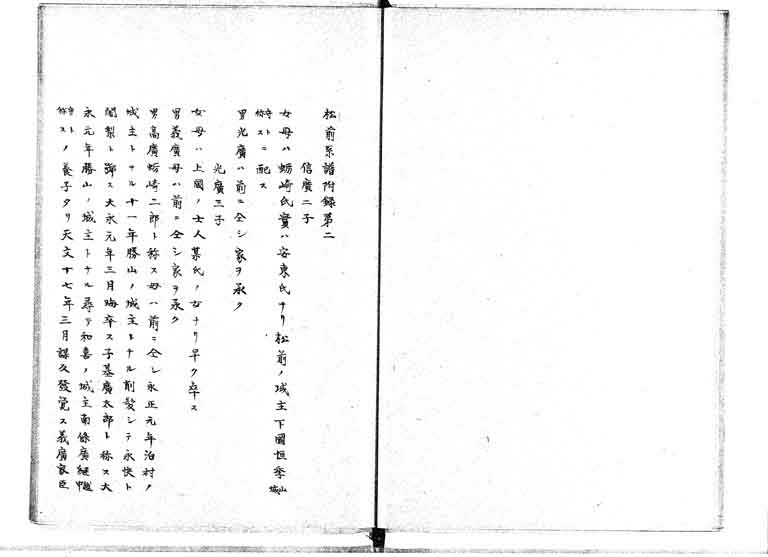 松前系譜附録第二
信廣二子
女母ハ蛎崎氏實ハ安東氏ナリ松前ノ城主下國恒季山城
守ト称スニ配ス
男光廣ハ前ニ仝シ家ヲ承ク
光廣三子
女母ハ上國ノ士人某氏ノ女ナリ早ク卒ス
男義廣母ハ前ニ仝シ家ヲ承ク
男高廣蛎崎二郎ト称ス母ハ前ニ仝シ永正元年泊村ノ
城主トナル十一年勝山ノ城主トナル削髪シテ永快ト
闍梨ト号ス大永元年三月晦卒ス子基廣太郎ト称ス大
永元年勝山ノ城主トナル尋テ和喜ノ城主南條廣継越中
守ト称スノ養子タリ天文十七年三月謀久發覚ス義廣家臣